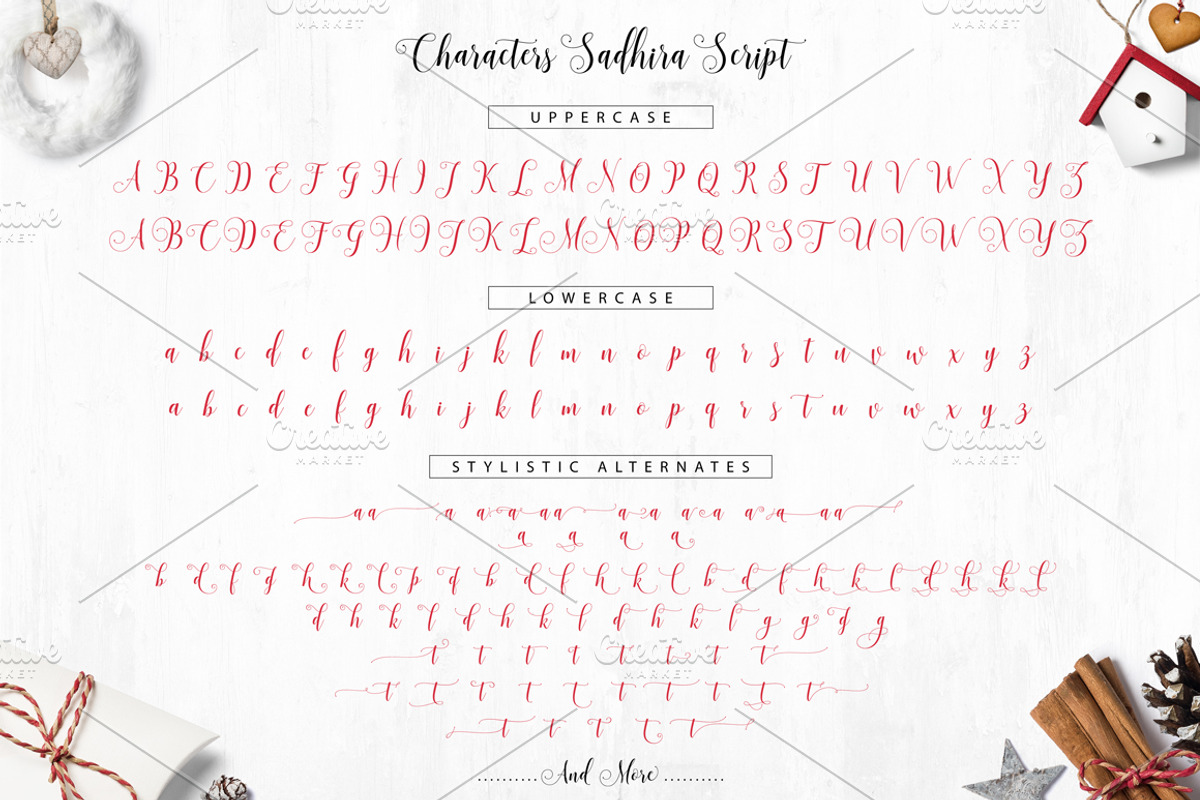 Characters Sadhira Script
UPPERCASE
A B C D E F G H I J K L M N O P Q R S T U V W X Y Z
A B C D E F G H I J K L M N O P Q R S T U V W X Y Z
LOWERCASE
a b c d e f g h i j k l m n o p q r s t u v w x y z
a b c d e f g h i j k l m n o p q r s t u v w x y z
STYLISTIC ALTERNATES
a a a a a a a a a a a a a a a
a a a a
b d f g h k l p q b d f h k l b d f h k l d h k l
d h k l d h k l d h k l g g g g
t t t t t t t t
t t t t t t t t t t
t t t t t
..........And More..........
Creative MARKET
Creative MARKET
Creative MARKET
Creative MARKET
Creative MARKET
Creative MARKET
Creative MARKET
Creative MARKET